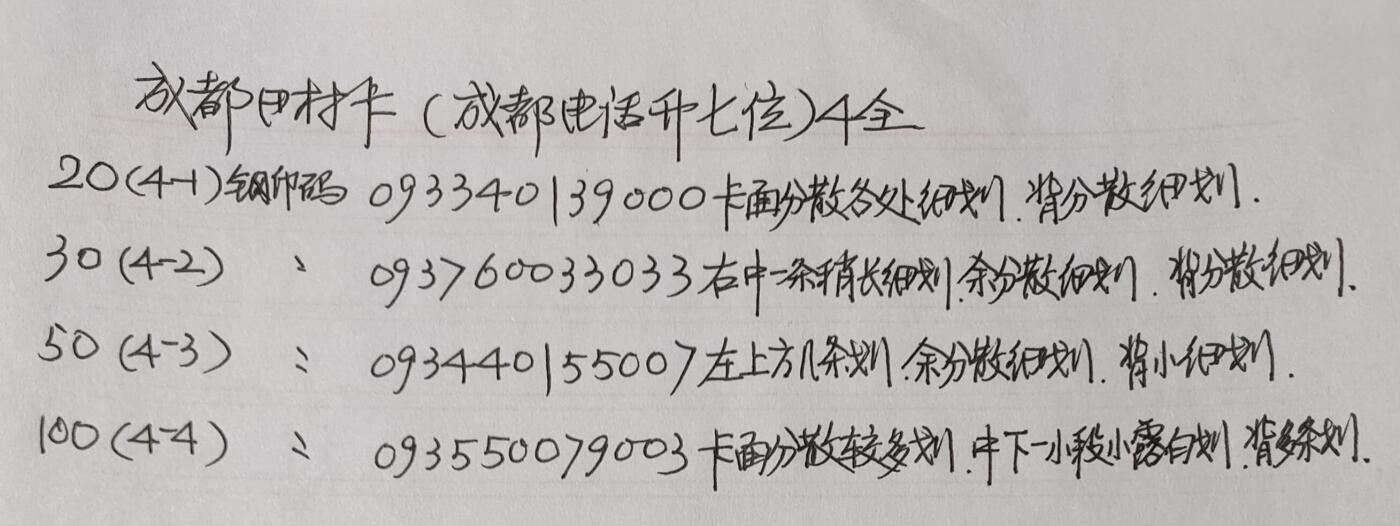 成都田村卡（成都电话升七位）4全
20(4-1)钢印码 093340139000卡面分散各处细划.背分散细划.
30(4-2) 〃 093760033033右中一条稍长细划.余分散细划.背分散细划.
50(4-3) 〃 093440155007左上方几条划.余分散细划.背小细划.
100(4-4) 〃 093550079003卡面分散较多划.中下一小段小露白划.背多条划.